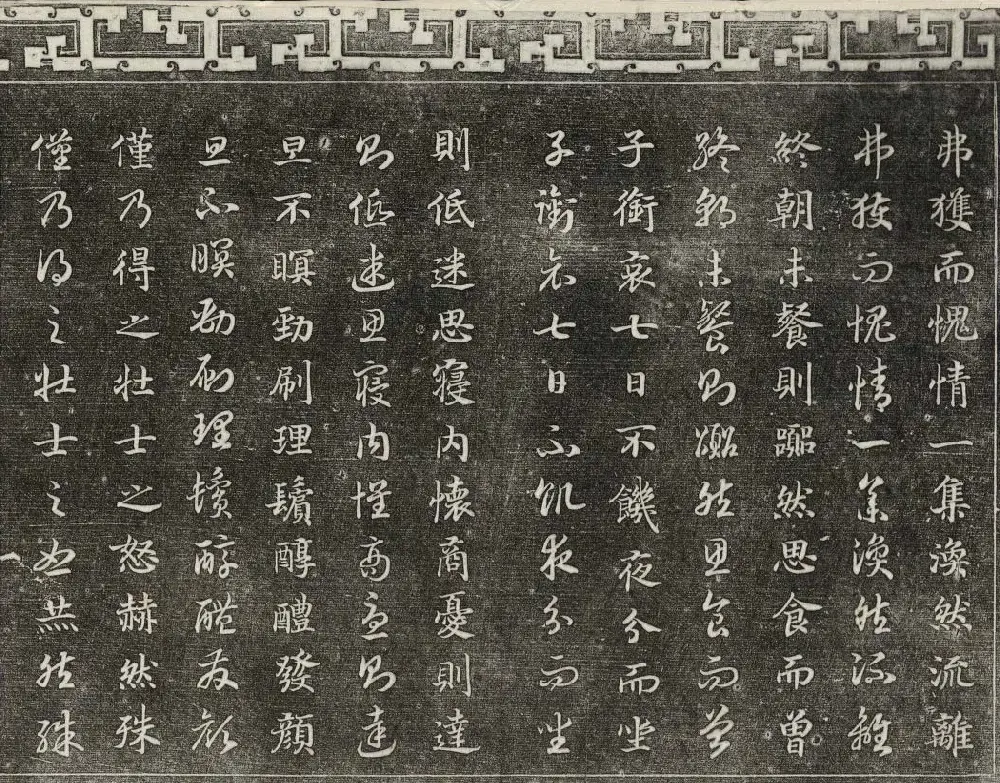 弗獲而愧情一集渙然流離
弗獲而愧情一集渙然流離
終朝未餐則然思食而曾
終朝未餐則然思食而曾
子銜哀七日不饑夜分而坐
子銜哀七日不飢夜分而坐
則低迷思寢內懷商憂則達
則低迷思寢內懷商憂則達
旦不瞑勁刷理鬢醇醴發顏
旦不瞑勁刷理鬢醇醴發顏
僅乃得之壯士之怒赫然殊
僅乃得之壯士之怒赫然殊